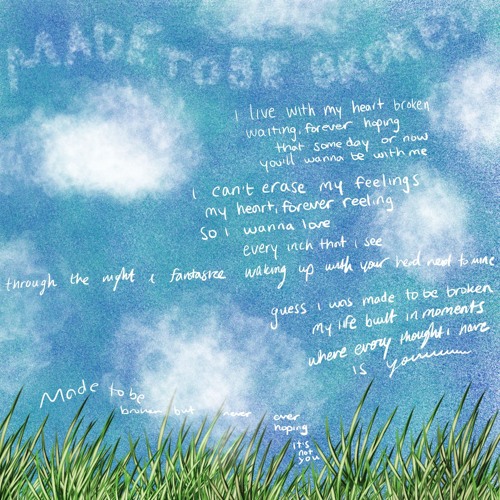 MADE TO BE BROKEN
i live with my heart broken
waiting, forever hoping
that some day or now
you'll wanna be with me
i can't erase my feelings
my heart, forever reeling
so i wanna love
every inch that i see
through the night i fantasize waking up with your head next to mine
guess i was made to be broken
my life built in moments
where every thought i have
is youuuuuu
Made to be
broken but never over
hoping
it's
not
you